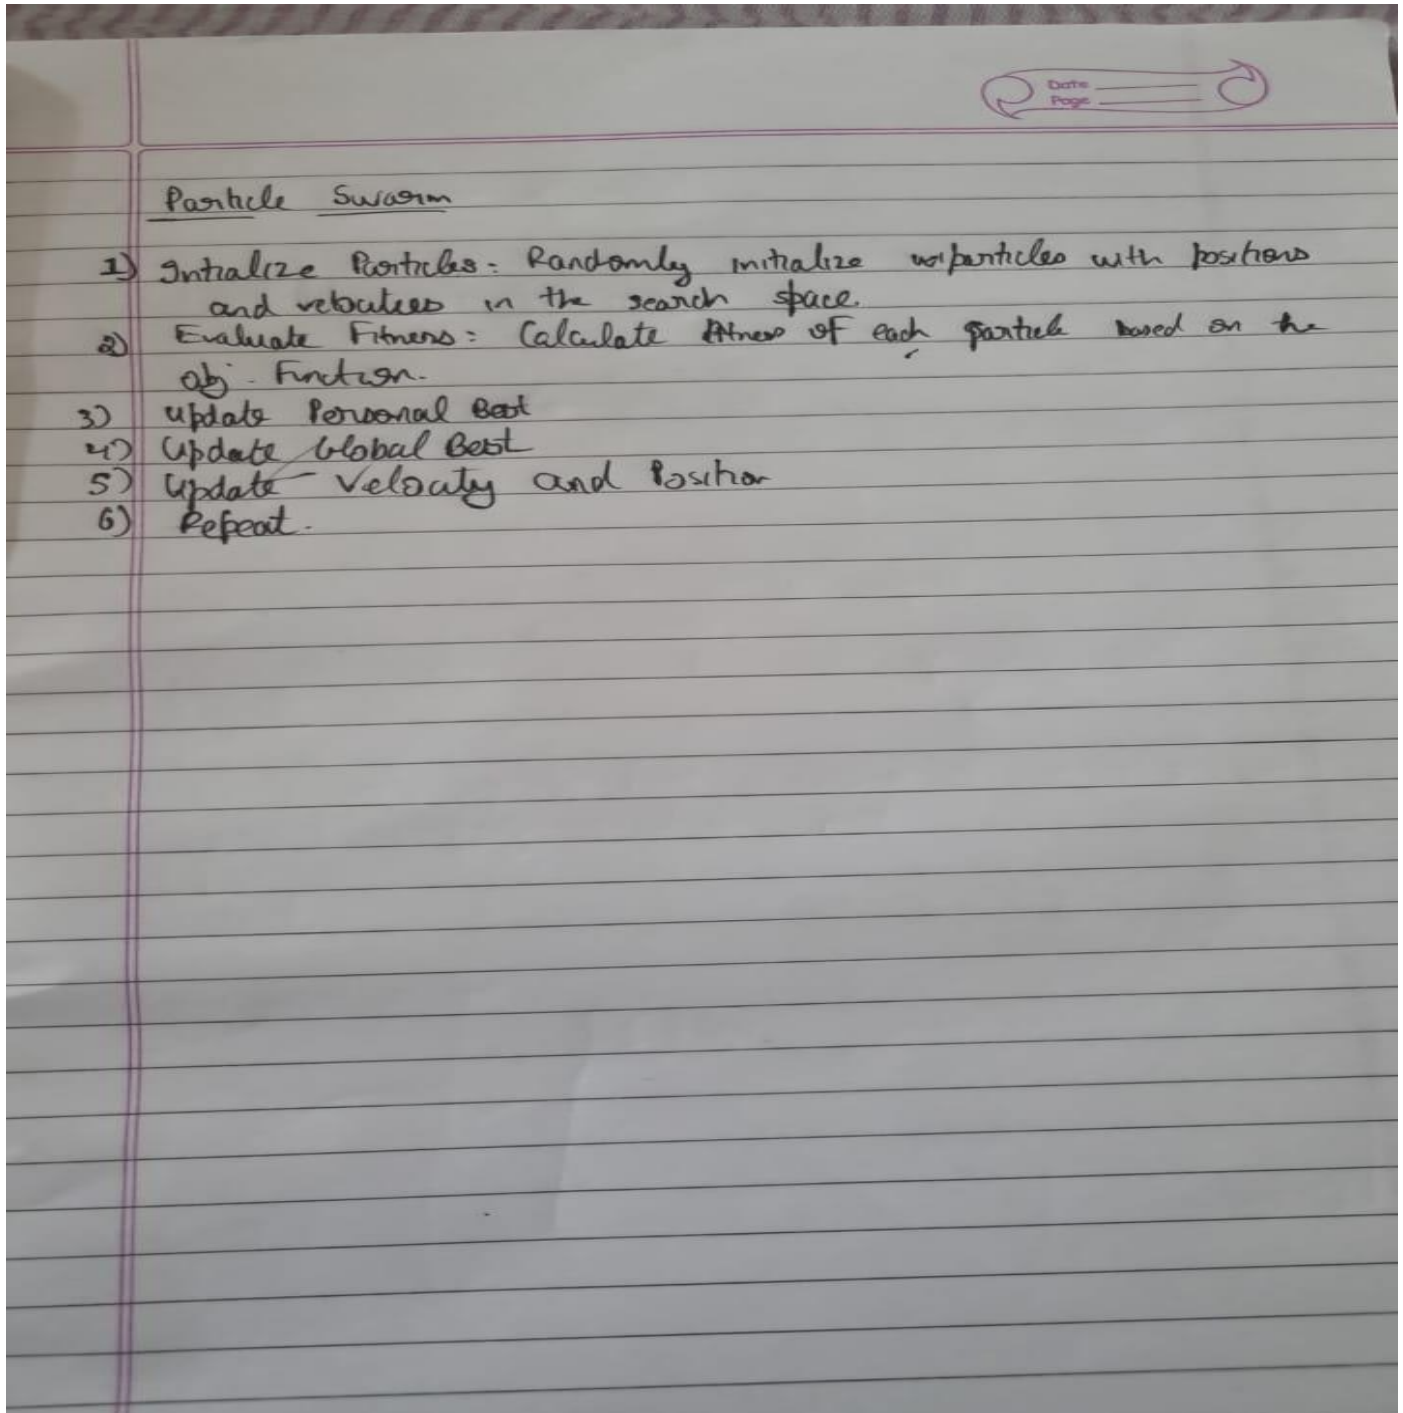 Date
Page
Particle Swarm
1) Initialize Particles: Randomly initialize particles with positions
and velocities in the search space.
2) Evaluate Fitness: Calculate fitness of each particle based on the
obj. Function.
3) Update Personal Best
4) Update Global Best
5) Update Velocity and Position
6) Repeat.